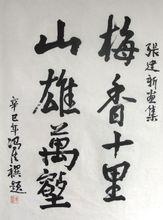 張建新畫集
梅香十里
山雄萬壑
辛巳年馮其庸題